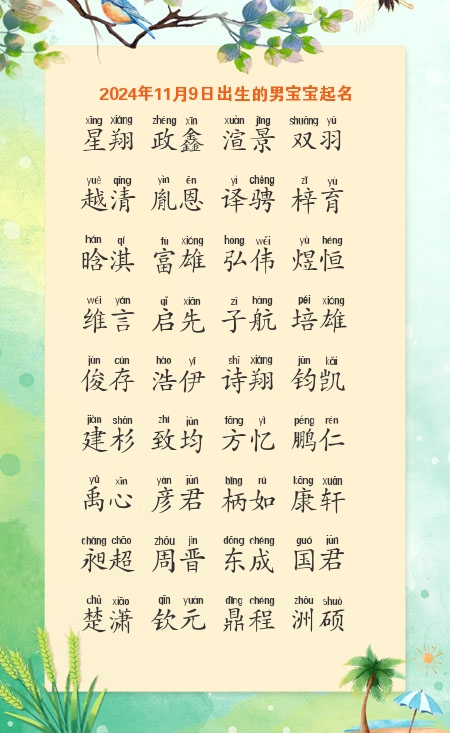 2024年11月9日出生的男宝宝起名
xīng xiáng zhèng xīn xuàn jǐng shuāng yǔ
星翔 政鑫 渲景 双羽
yuè qīng yìn ēn yì chěng zǐ yù
越清 胤恩 译骋 梓育
hán qí fù xióng hóng wěi yù héng
晗淇 富雄 弘伟 煜恒
wéi yán qǐ xiān zǐ háng péi xióng
维言 启先 子航 培雄
jùn cún hào yī shī xiáng jūn kǎi
俊存 浩伊 诗翔 钧凯
jiàn shān zhì jūn fāng yì péng rén
建杉 致均 方忆 鹏仁
yǔ xīn yàn jūn bǐng rú kāng xuān
禹心 彦君 柄如 康轩
chǎng chāo zhōu jìn dōng chéng guó jūn
昶超 周晋 东成 国君
chǔ xiāo qīn yuán dǐng chéng zhōu shuò
楚潇 钦元 鼎程 洲硕